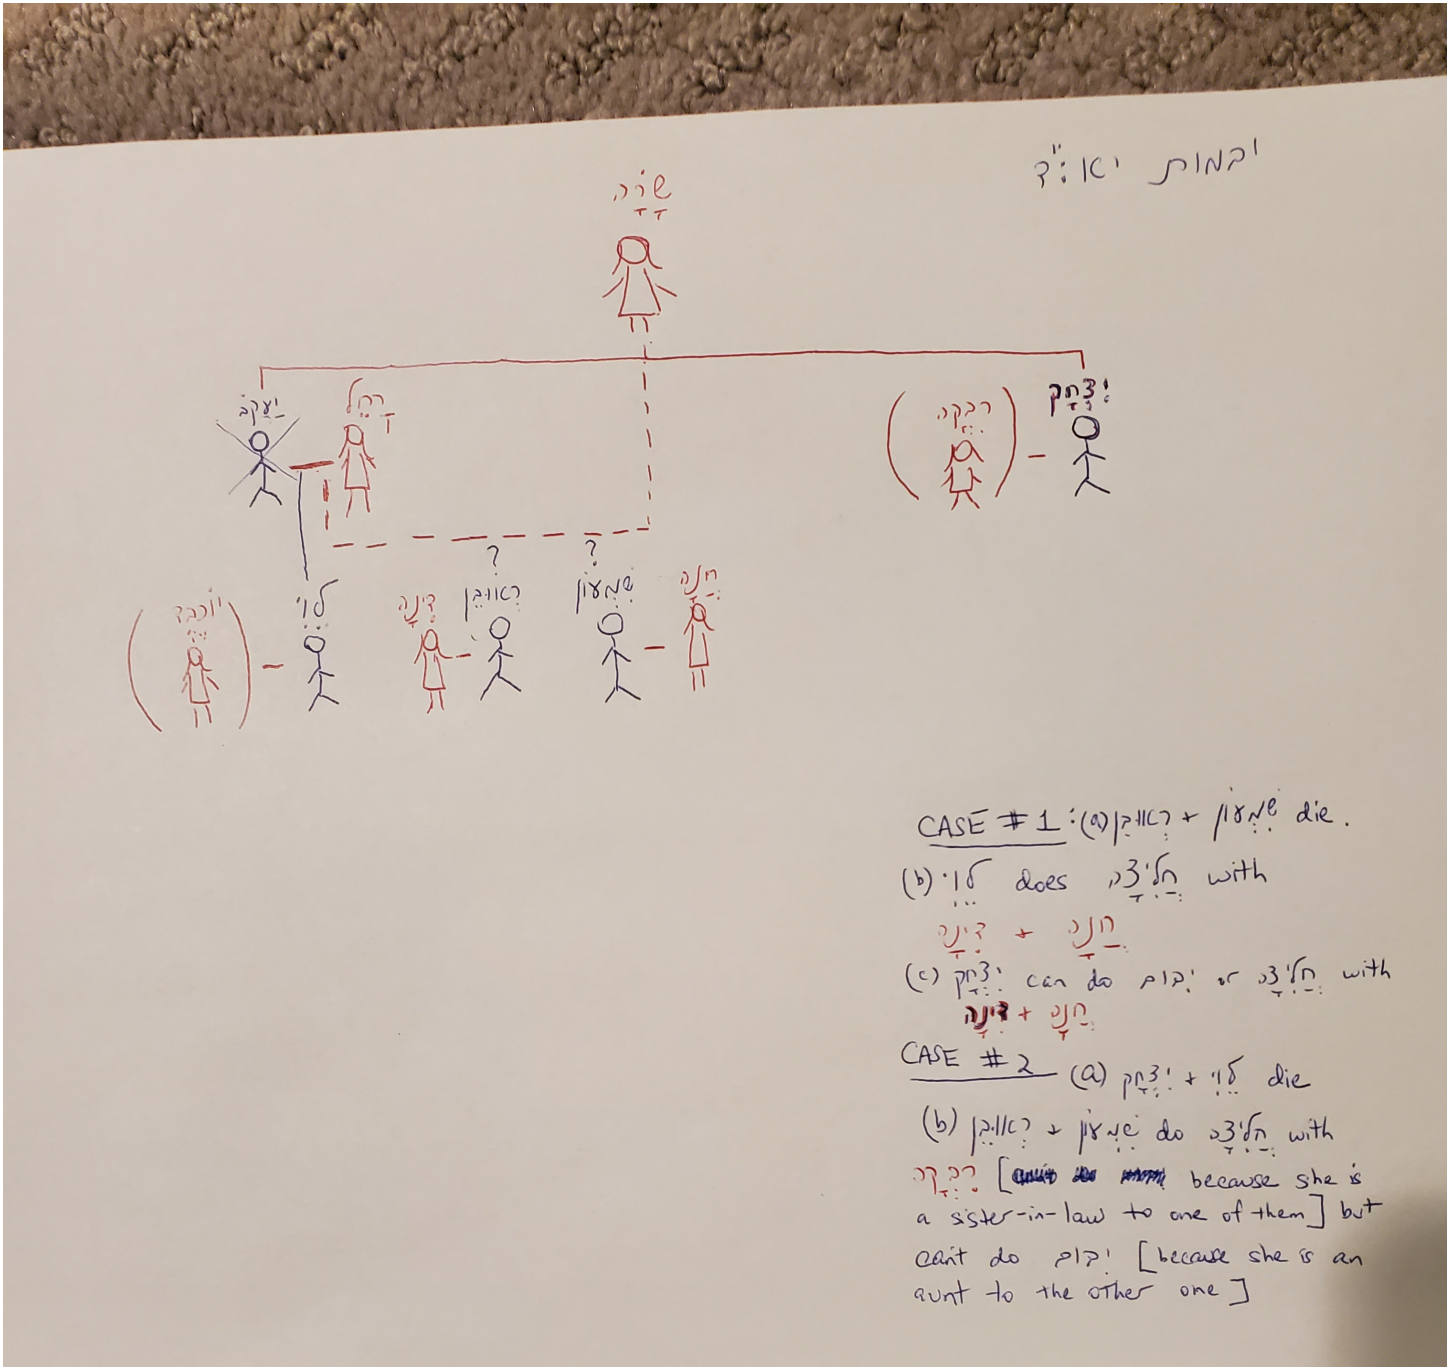 יבמות יא:ד"
שָׂרָה
יַעֲקֹב
רָחֵל
רִבְקָה
יִצְחָק
?
?
לֵוִי
דִּינָה
רְאוּבֵן
שִׁמְעוֹן
חַנָּה
CASE #1: (a) רְאוּבֵן + שִׁמְעוֹן die.
(b) לֵוִי does חֲלִיצָה with
דִּינָה + חַנָּה
(c) יִצְחָק can do יִבּוּם or חֲלִיצָה with
דִּינָה + חַנָּה
CASE #2 (a) יִצְחָק + לֵוִי die
(b) רְאוּבֵן + שִׁמְעוֹן do חֲלִיצָה with
רִבְקָה [because she is
a sister-in-law to one of them] but
can't do יִבּוּם [because she is an
aunt to the other one]